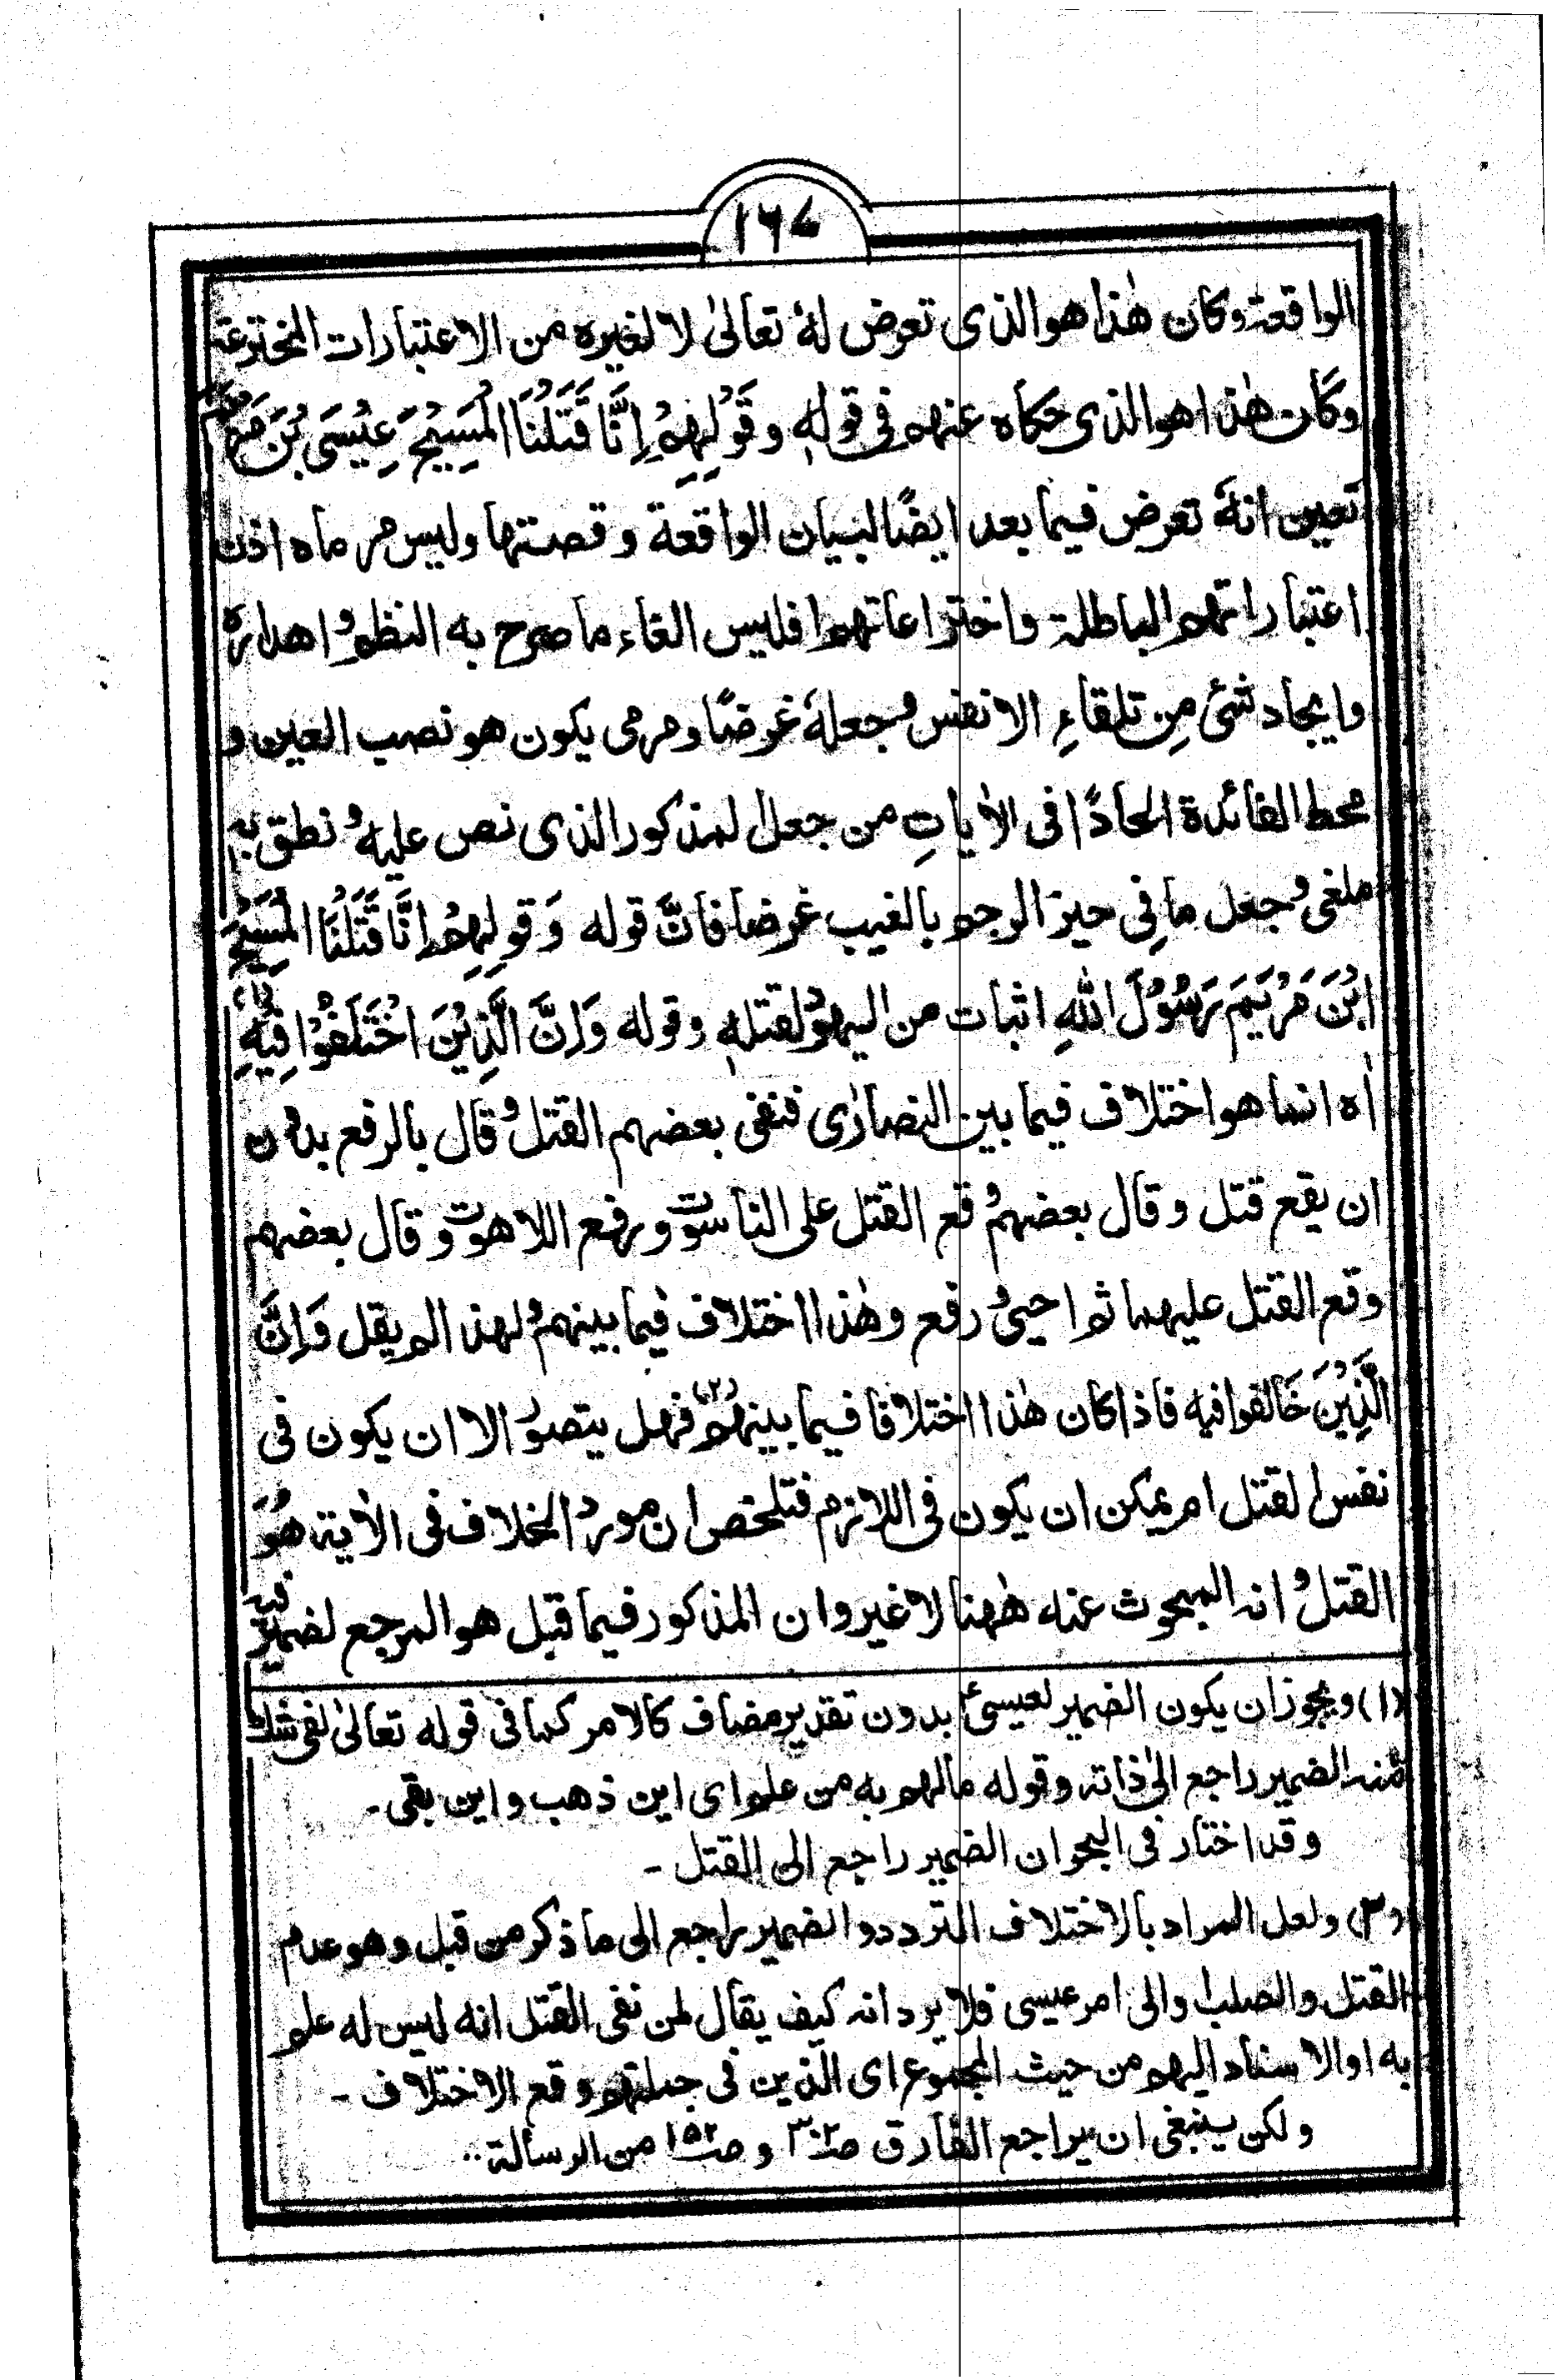 ۱۶۷
الواقعة وكان هٰذا هو الذى تعرض لهٗ تعالىٰ لا لغيره من الاعتبارات المخترعة
وكان هٰذا هو الذى حكاه عنهم فى قولهٖ وقَوْلِهِمْ اِنَّا قَتَلْنَا الْمَسِيْحَ عِيْسَى بْنَ مَرْيَمَ
تعين انهٗ تعرض فيما بعد ايضًا لبيان الواقعة وقصتها وليس مرماه اذن
اعتباراتهم الباطلة واختراعاتهم افليس القاء ما صرح به النظم و اهداره
وايجاد شئ مِن تلقاءِ الانفس وجعلهٗ غرضًا ومرمى يكون هو نصب العين و
محط الفائدة الحادًا فى الاٰياتِ من جعل المذكور الذى نص عليه و نطق به
ملغى و جعل ما فِى حيز الرجم بالغيب غرضا فانَّ قوله وَقولِهِمْ اِنَّا قَتَلْنَا الْمَسِيْحَ
ابْنَ مَرْيَمَ رَسُوْلَ اللهِ اثبات من اليهود لقتلهٖ وقوله وَاِنَّ الَّذِيْنَ اخْتَلَفُوْا فِيْهِ (۱)
اٰه انما هو اختلاف فيما بين النصارٰى فنفى بعضهم القتل وقال بالرفع بدون
ان يقع قتل وقال بعضهم وقع القتل على الناسوت ورفع اللاهوت وقال بعضهم
وقع القتل عليهما ثم احيى و رفع وهٰذا اختلاف فيما بينهم ولهذا لم يقل وَاِنَّ
الَّذِيْنَ خَالفوا فيه فاذا كان هٰذا اختلافا فيما بينهم (۲) فهل يتصور الا ان يكون فى
نفس القتل ام يمكن ان يكون فى اللازم فتلخص ان مورد الخلاف فى الاٰية هُوَ
القتل و انه المبحوث عنه هٰهنا لا غير وان المذكور فيما قبل هو المرجع لضمير فيه
(۱) ويجوز ان يكون الضمير لعيسىٰؑ بدون تقدير مضاف كالامر كما فى قوله تعالىٰ لفى شك
منه الضمير راجع الىٰ ذاته وقوله مالهم به من علم اى اين ذهب واين بقى۔
وقد اختار فى البحر ان الضمير راجع الى القتل۔
(۲) ولعل المراد بالاختلاف التردد والضمير راجع الى ما ذكر من قبل وهو عدم
القتل والصلب والى امر عيسى فلا يرد انه كيف يقال لمن نفى القتل انه ليس له علم
به او الاسناد اليهم من حيث المجموع اى الذين فى جملتهم وقع الاختلاف۔
ولكن ينبغى ان يراجع الفارق صـ۳۰۲ وصـ۱۵۲ من الرسالة۔